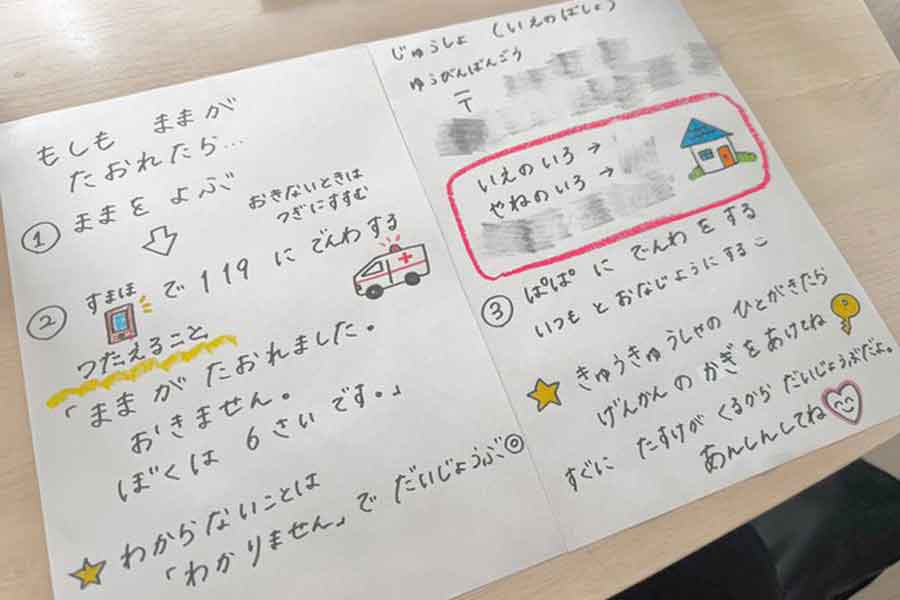 もしも ままが
たおれたら…
① ままを よぶ
おきないときは
つぎにすすむ
② すまほ で 119 に でんわ する
つたえること
「ままが たおれました。
おきません。
ぼくは 6さい です。」
わからないことは
「わかりません」で だいじょうぶ◎
じゅうしょ (いえのばしょ)
ゆうびんばんごう
〒
いえの いろ →
やねの いろ →
③ ぱぱ に でんわ を する
いつも と おなじようにする
きゅうきゅうしゃの ひとがきたら
げんかん の かぎ を あけてね
すぐに たすけが くるから だいじょうぶだよ。
あんしんしてね